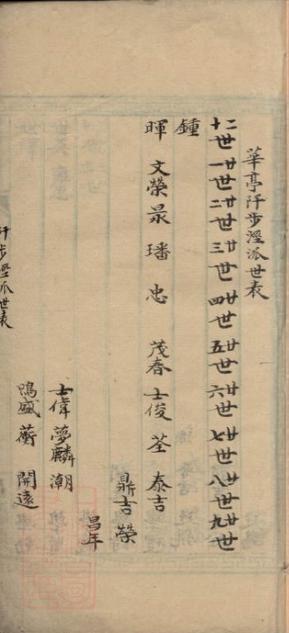 華亭阡步涇派世表
二十世 廿一世 廿二世 廿三世 廿四世 廿五世 廿六世 廿七世 廿八世 廿九世
鍾
暉 文榮 泉 璠 忠 茂春 士俊 荃 泰吉
鼎吉 榮
昌年
士偉 夢麟 潮
鳴盛 蘅 開遠
阡步涇派世表